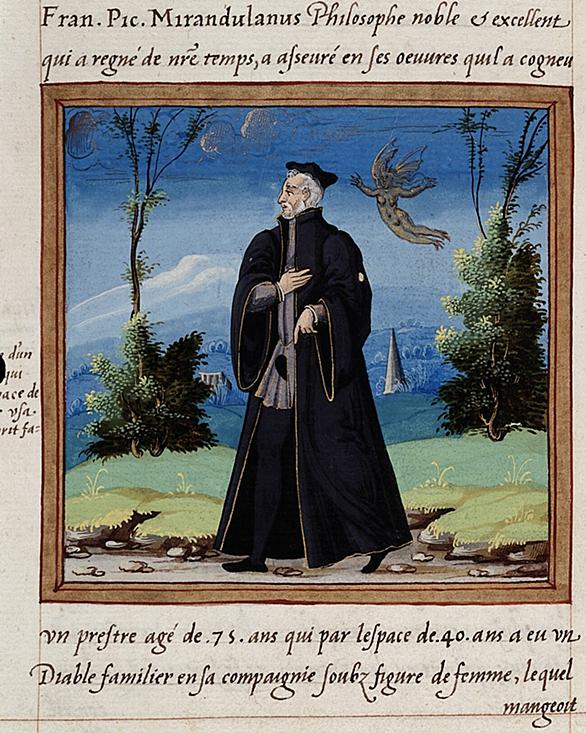 Fran. Pic. Mirandulanus Philosophe noble & excellent
qui a regné de nr̃e temps, a asseuré en ses oeuures quil a cogneu
d'un
qui
pace de
vsa
rit fa=
vn prestre agé de .75. ans qui par lespace de .40. ans a eu vn
Diable familier en sa compaignie soubz figure de femme, lequel
mangeoit